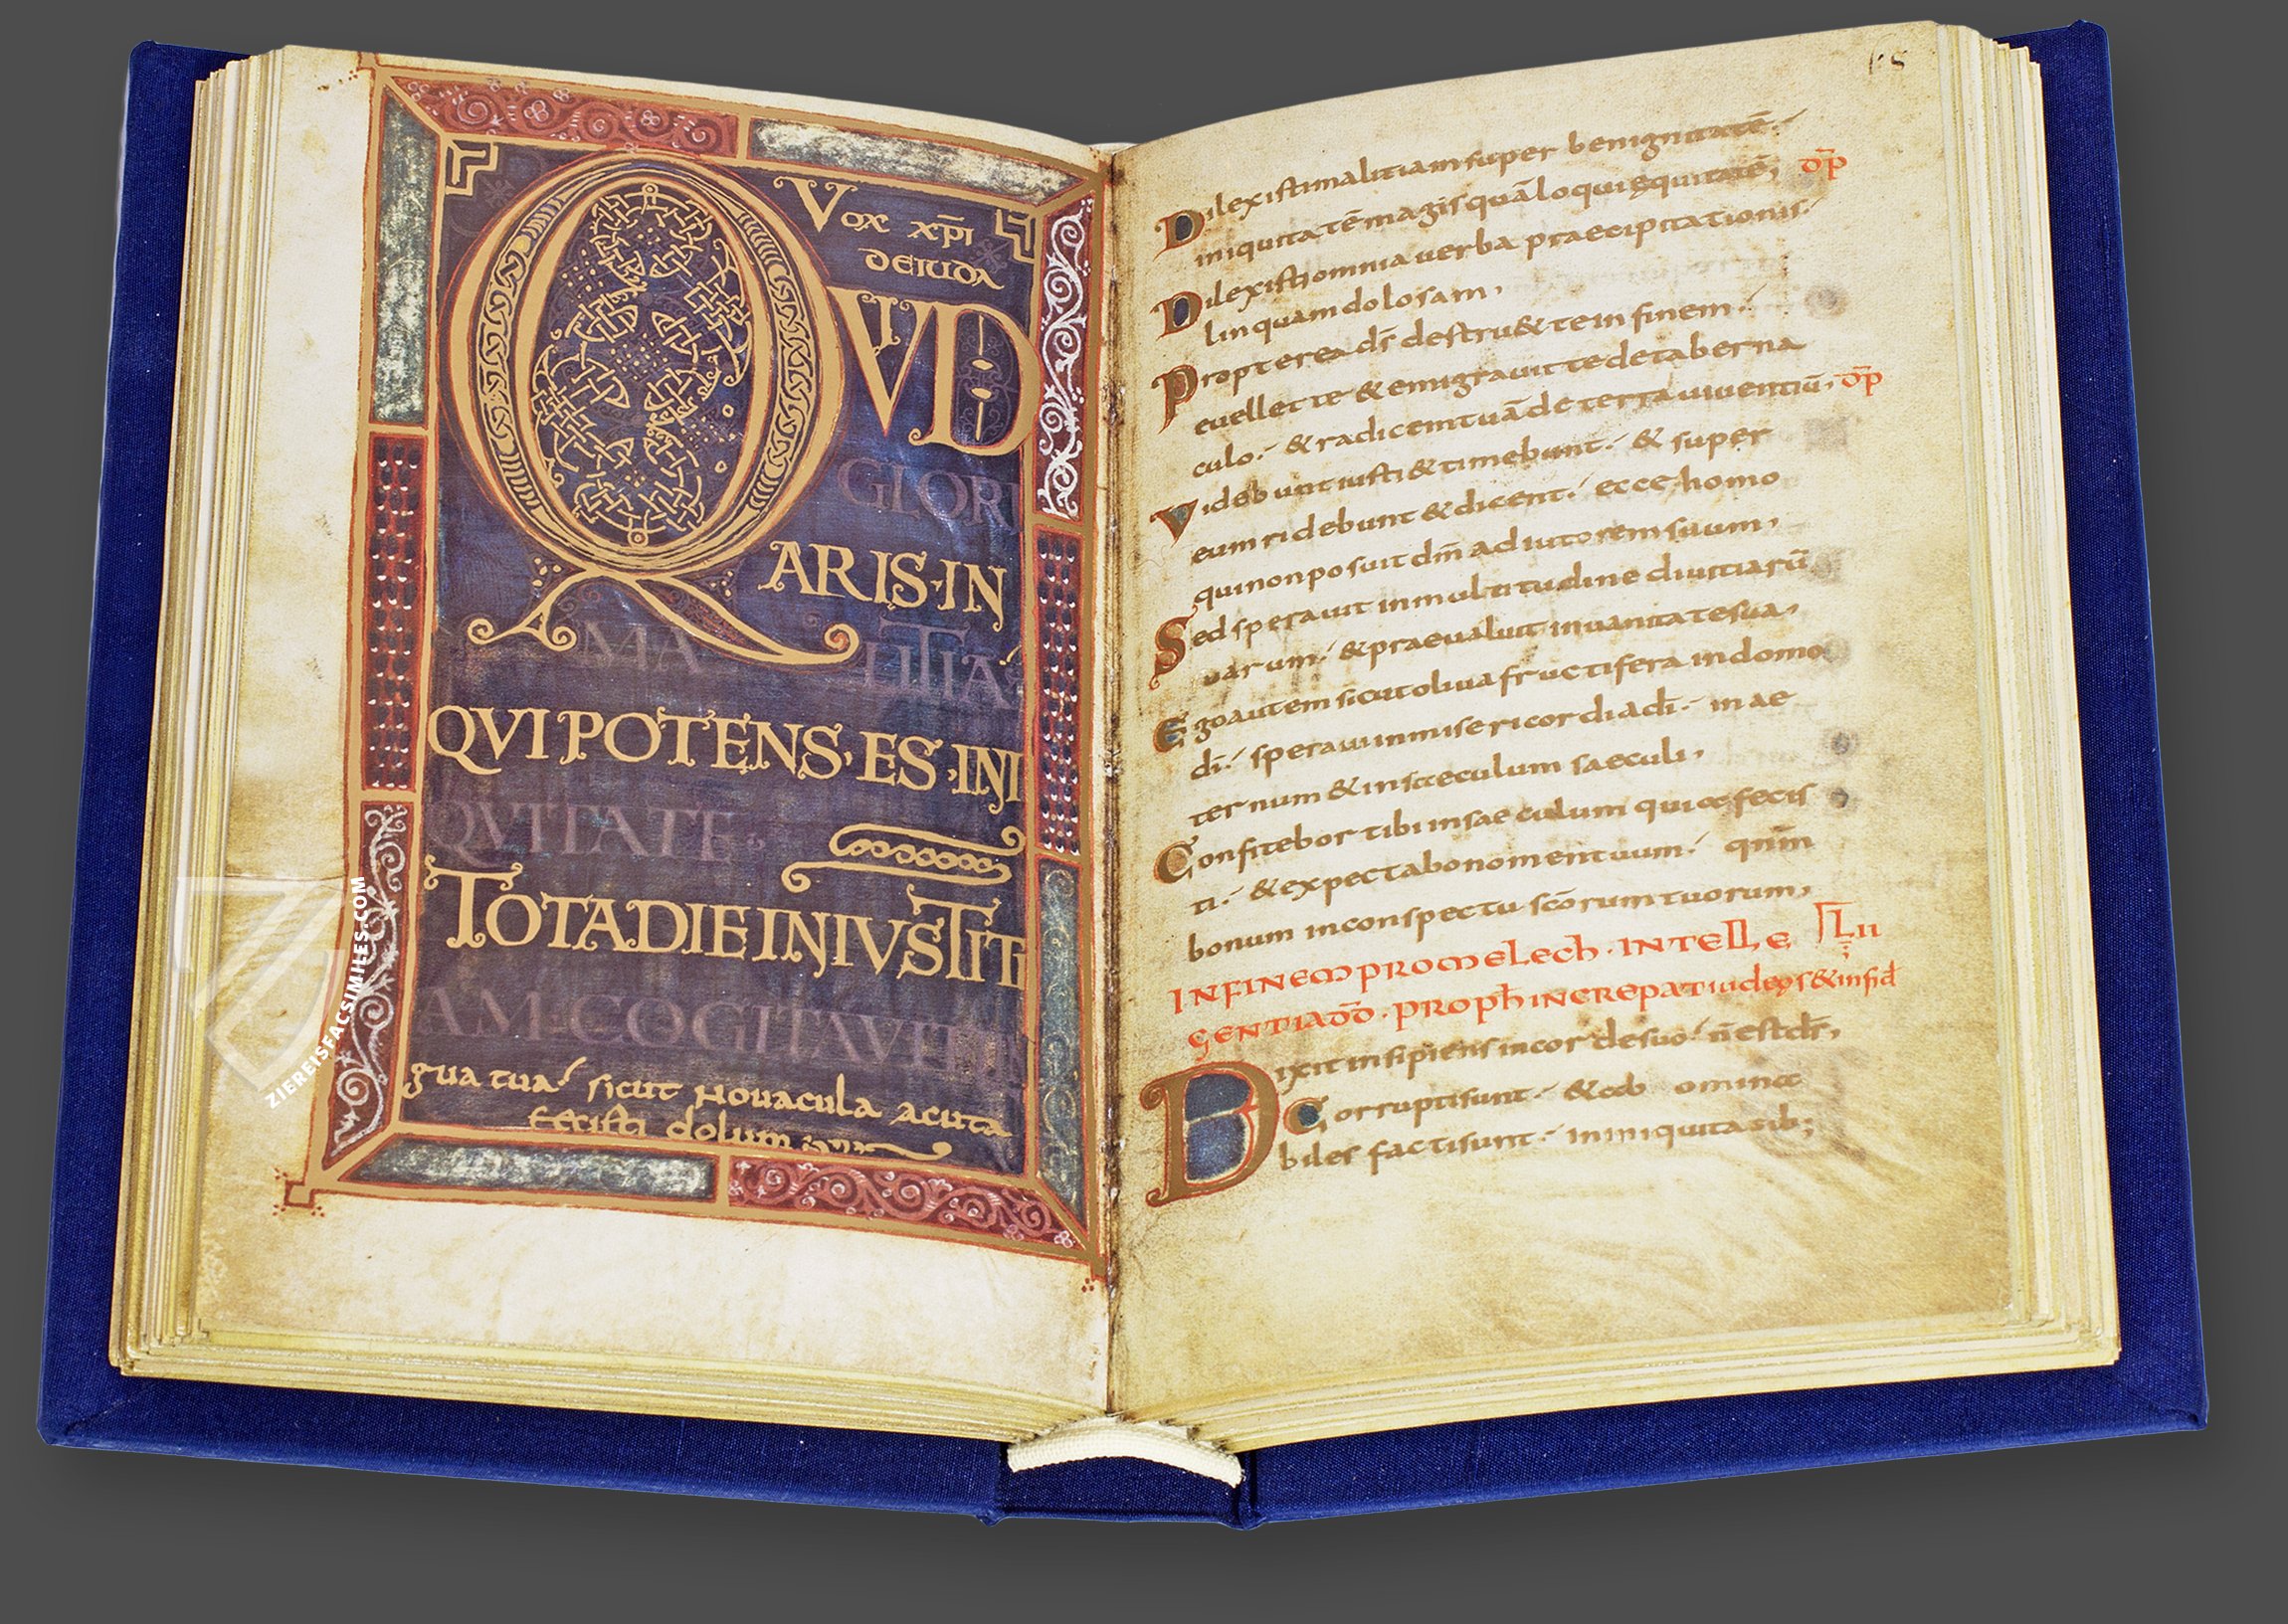 Vox xp̄i
de iuda
QVID
GLORI
ARIS·IN
MALITIA·
QVI POTENS·ES·INI
QVITATE·
TOTA DIE INIVSTITI
AM COGITAVIT
gua tua·/ sicut nouacula acuta
fecisti dolum
65
Dilexisti malitiam super benignitatē·/
iniquitatē magis quā loqui ęquitatē; d̄p
Dilexisti omnia uerba praecipitationis·/
linguam dolosam,
Propterea ds̄ destru&te in finem·/
euellet te & emigrauit te de taberna
culo·/ & radicem tuā de terra uiuentiū, d̄p
Videbunt iusti & timebunt·/ & super
eum ridebunt & dicent·/ ecce homo
qui non posuit dm̄ adiutorem suum,
Sed sperauit in multitudine diuitiarū
uarum·/ & praeualuit in uanitate sua,
Ego autem sicut oliua fructifera in domo
dī·/ speraui in misericordia dī·/ in ae
ternum & in saeculum saeculi,
Confitebor tibi in saeculum quia fecis
ti·/ & expectabo nomen tuum·/ qnm̄
bonum in conspectu scōrum tuorum,
IN FINEM PRO MELECH·INTELLE LII
GENTIA DD̄·PROPH INCREPAT iudeos & infid
Dixit insipiens in corde suo·/ n̄ est ds̄,
Corrupti sunt·/ & ab omina
biles facti sunt·/ in iniquitatib;
ZIEREISFACSIMILES.COM